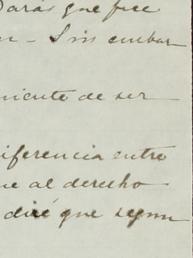 que fue
Sin embar
niente de ser
iferencia entre
ue al derecho
diré que segun